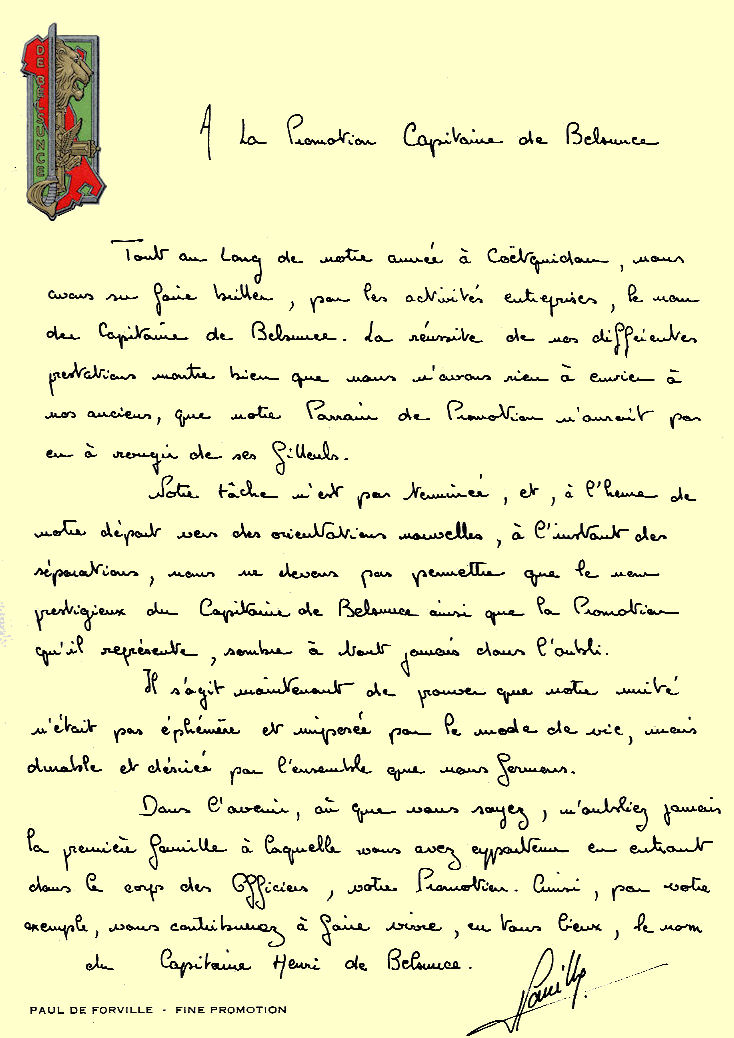 DE BELSUNCE
A La Promotion Capitaine de Belsunce
Tout au long de notre année à Coëtquidan, nous
avons su faire briller, par les activités entreprises, le nom
du Capitaine de Belsunce. La réussite de nos différentes
prestations montre bien que nous n'avons rien à envier à
nos anciens, que notre Parrain de Promotion n'aurait pas
eu à rougir de ses filleuls.
Notre tâche n'est pas terminée, et, à l'heure de
notre départ vers des orientations nouvelles, à l'instant des
séparations, nous ne devons pas permettre que le nom
prestigieux du Capitaine de Belsunce ainsi que la Promotion
qu'il représente, sombre à tout jamais dans l'oubli.
Il s'agit maintenant de prouver que notre unité
n'était pas éphémère et imposée par le mode de vie, mais
durable et désirée par l'ensemble que nous formons.
Dans l'avenir, où que vous soyez, n'oubliez jamais
la première famille à laquelle vous avez appartenu en entrant
dans le corps des Officiers, votre Promotion. Ainsi, par votre
exemple, vous contribuerez à faire vivre, en tous lieux, le nom
du Capitaine Henri de Belsunce.
PAUL DE FORVILLE - FINE PROMOTION